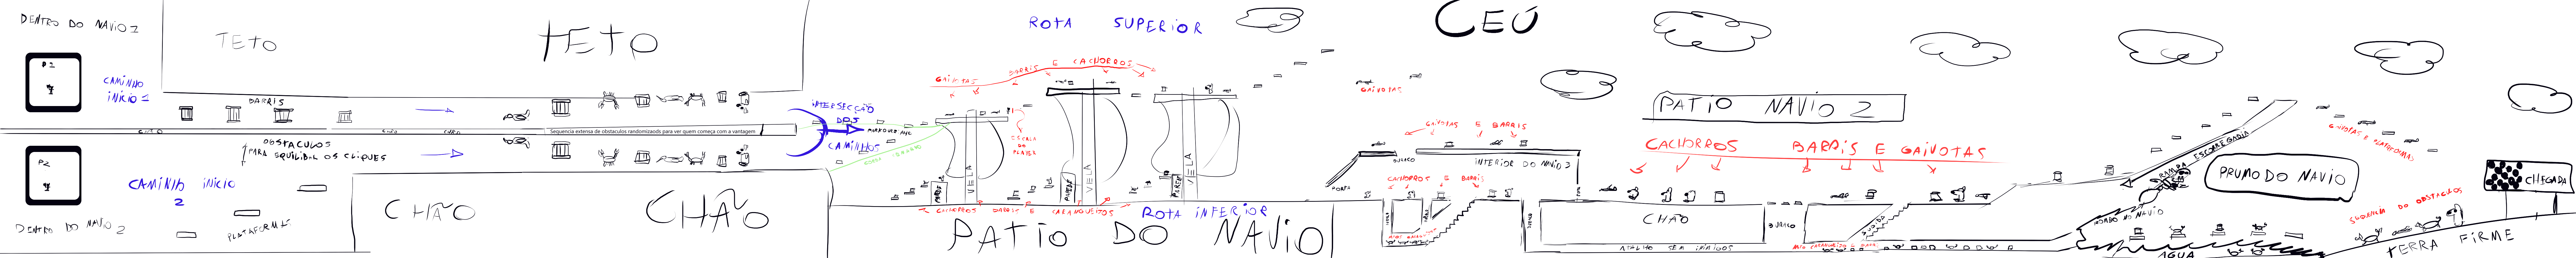 DENTRO DO NAVIO 1
P1
CAMINHO
INICIO 1
TETO
TETO
BARRIS
CHÃO
CHÃO
CHÃO
Sequencia extensa de obstaculos randomizaods para ver quem começa com a vantagem
OBSTACULOS
PARA EQUILIBRAR OS CLIQUES
P2
CAMINHO INICIO
2
DENTRO DO NAVIO 2
PLATAFORMAS
CHÃO
CHÃO
INTERSECÇÃO
DOS
CAMINHOS
ROTA SUPERIOR
GAIVOTAS
BARRIS E CACHORROS
ESCALA
DO
PLAYER
VELA
VELA
VELA
PAREDE
PAREDE
PAREDE
CACHORROS BARRIS E CARANGUEIJOS
ROTA INFERIOR
PATIO DO NAVIO
CEÚ
GAIVOTAS
GAIVOTAS E BARRIS
BURACO
INTERIOR DO NAVIO 2
PORTA
CACHORROS E BARRIS
PATIO NAVIO 2
CACHORROS BARRIS E GAIVOTAS
CHÃO
BURACO
ATALHO SEM INIMIGOS
ESCADA
RAMPA ESCORREGADIA
GAIVOTAS E PLATAFORMAS
PRUMO DO NAVIO
CHEGADA
SEQUENCIA DO OBSTACULOS
TERRA FIRME
AGUA